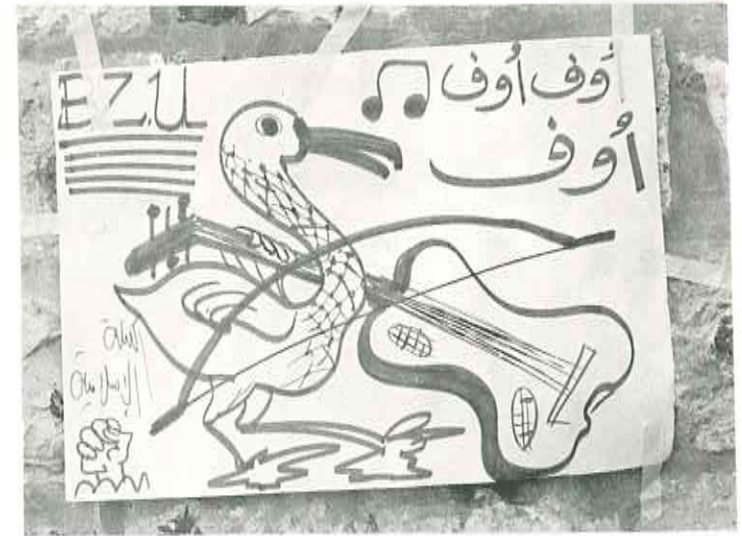 EZU
أوف أُوف
أُوف
الكتلة
الإسلامية